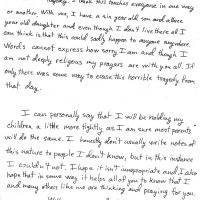 tragedy. I think this touches everyone in one way
or another. With me, I have a six year old son and a three
year old daughter and even though I don't live there all I
can think is that this could sadly happen to anyone anywhere.
Words cannot express how sorry I am and though I
am not deeply religious my prayers are with you all. If
only there was some way to erase this terrible tragedy from
that day.
I can personally say that I will be holding my
children a little more tightly as I am sure most parents
will do the same. I honestly don't usually write notes of
this nature to people I don't know, but in this instance
I couldn't not. I hope it isn't inappropriate and I also
hope that in some way it helps all of you to know that I
and many others like me are thinking and praying for you.